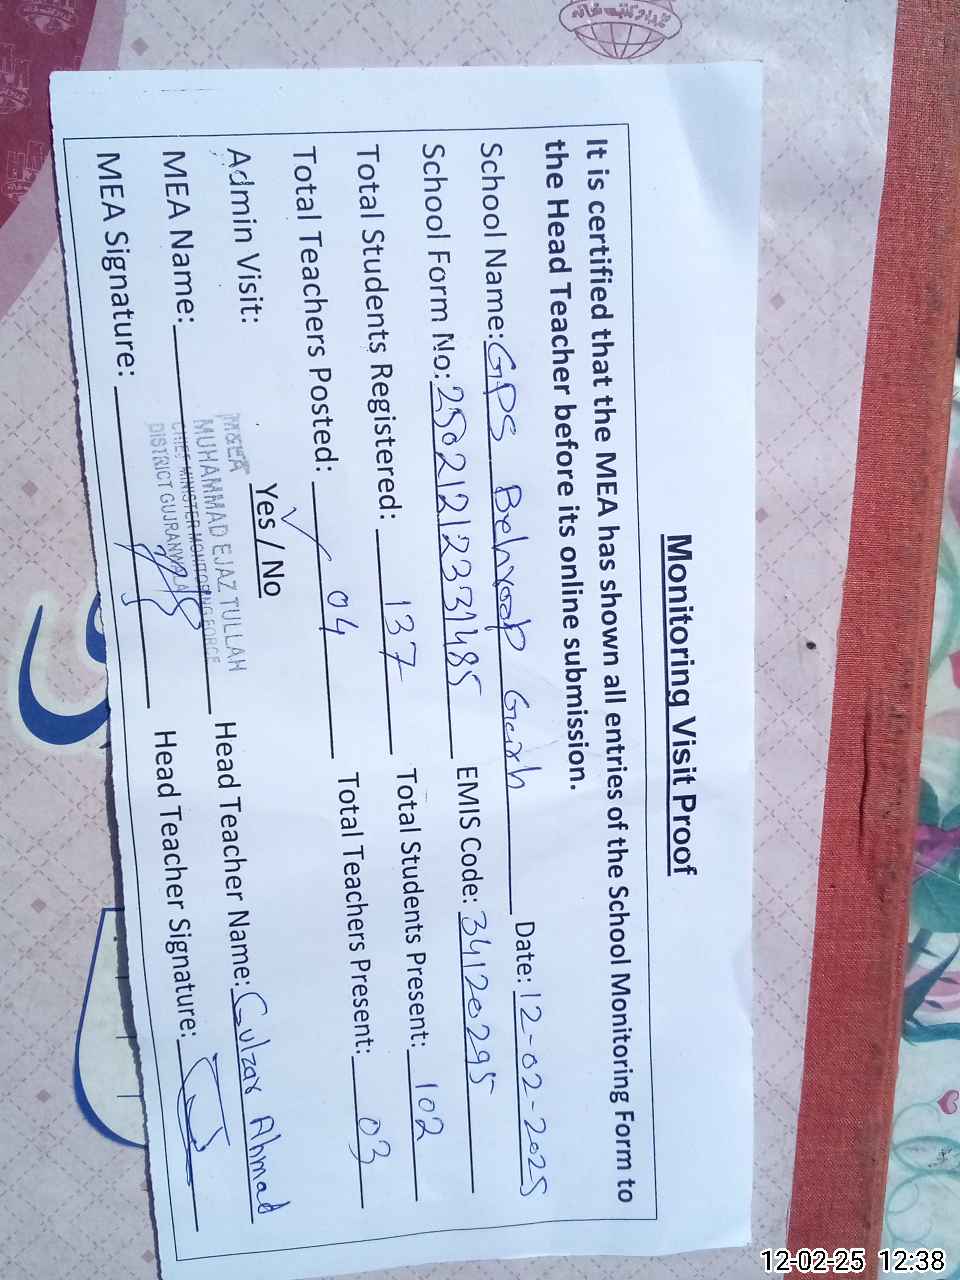 Monitoring Visit Proof
It is certified that the MEA has shown all entries of the School Monitoring Form to
the Head Teacher before its online submission.
School Name: GPS Behroop Garh Date: 12-02-2025
School Form No: 25021212331485 EMIS Code: 34120295
Total Students Registered: 137 Total Students Present: 102
Total Teachers Posted: 04 Total Teachers Present: 03
Admin Visit: Yes / No
M&EA
MUHAMMAD EJAZ TULLAH
CHIEF MINISTER MONITORING FORCE
DISTRICT GUJRANWALA
MEA Name: Head Teacher Name: Gulzar Ahmad
MEA Signature: Head Teacher Signature:
12-02-25 12:38